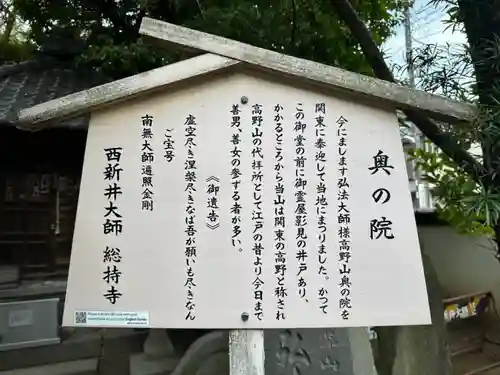 奥の院
今にまします弘法大師様高野山奥の院を
関東に奉迎して当地にまつりました。かつて
この御堂の前に御霊屋影見の井戸あり、
かかるところから当山は関東の高野と称され
高野山の代拝所として江戸の昔より今日まで
善男、善女の参ずる者が多い。
《御遺告》
虚空尽き涅槃尽きなば吾が願いも尽きなん
ご宝号
南無大師遍照金剛
西新井大師 總持寺
English Guide